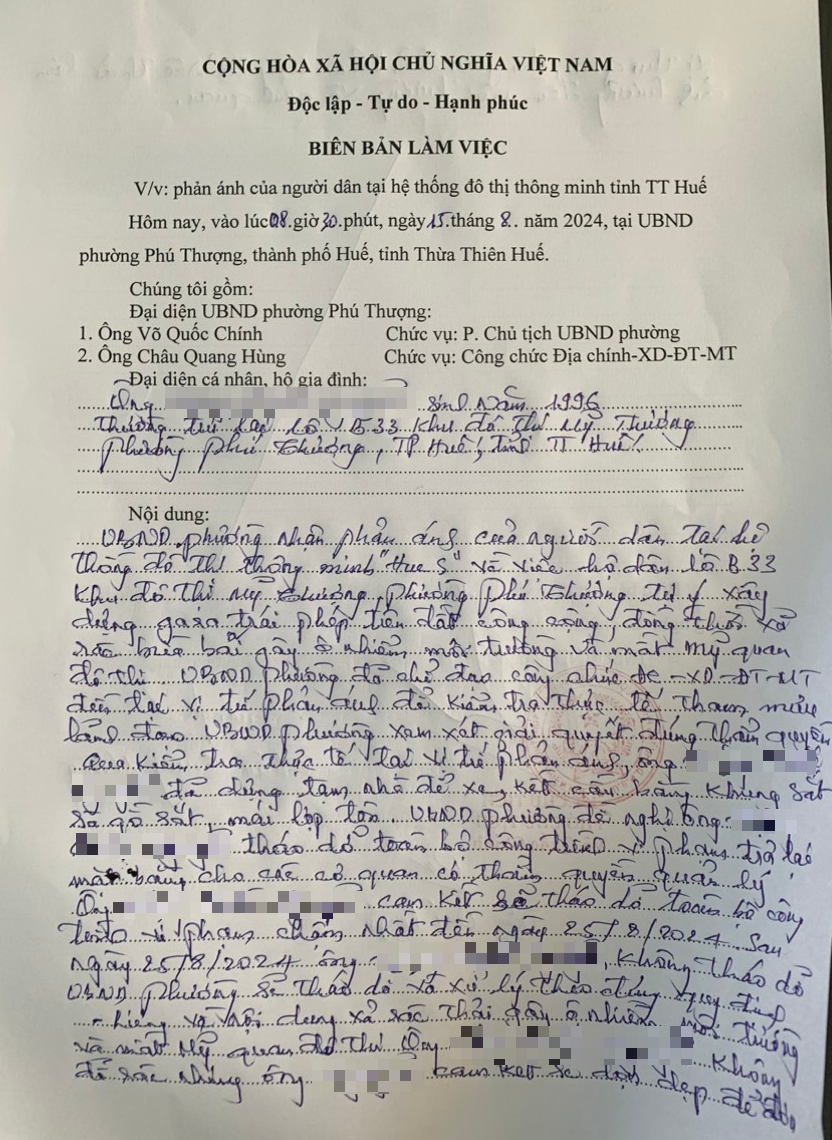 CỘNG HÒA XÃ HỘI CHỦ NGHĨA VIỆT NAM
Độc lập - Tự do - Hạnh phúc
BIÊN BẢN LÀM VIỆC
V/v: phản ánh của người dân tại hệ thống đô thị thông minh tỉnh TT Huế
Hôm nay, vào lúc 08 giờ 30 phút, ngày 15 tháng 8 năm 2024, tại UBND
phường Phú Thượng, thành phố Huế, tỉnh Thừa Thiên Huế.
Chúng tôi gồm:
Đại diện UBND phường Phú Thượng:
1. Ông Võ Quốc Chính Chức vụ: P. Chủ tịch UBND phường
2. Ông Châu Quang Hùng Chức vụ: Công chức Địa chính-XD-ĐT-MT
Đại diện cá nhân, hộ gia đình:
Ông sinh năm 1996
Thường trú tại lô B33 Khu đô thị Mỹ Thượng
phường Phú Thượng, TP Huế, tỉnh TT Huế.
Nội dung:
UBND phường nhận phản ánh của người dân tại hệ
thống đô thị thông minh "Hue S" về việc hộ dân lô B33
Khu đô thị Mỹ Thượng, phường Phú Thượng tự ý xây
dựng gara trái phép trên đất công cộng, đồng thời xả
rác bừa bãi gây ô nhiễm môi trường và mất mỹ quan
đô thị. UBND phường đã chỉ đạo công chức ĐC-XD-ĐT-MT
đến tại vị trí phản ánh để kiểm tra thực tế tham mưu
lãnh đạo UBND phường xem xét giải quyết đúng thẩm quyền
Qua kiểm tra thực tế tại vị trí phản ánh, ông
đã dựng tạm nhà để xe, kết cấu bằng khung sắt
xà gồ sắt, mái lợp tôn, UBND phường đề nghị ông
tháo dở toàn bộ công trình vi phạm trả lại
mặt bằng cho các cơ quan có thẩm quyền quản lý
Ông cam kết sẽ tháo dở toàn bộ công
trình vi phạm chậm nhất đến ngày 25/8/2024 Sau
ngày 25/8/2024 ông không tháo dở
UBND phường sẽ tháo dở và xử lý theo đúng quy định
- Riêng về nội dung xả rác thải gây ô nhiễm môi trường
và mất mỹ quan đô thị Ông không
đổ rác nhưng ông cam kết sẽ dọn dẹp để